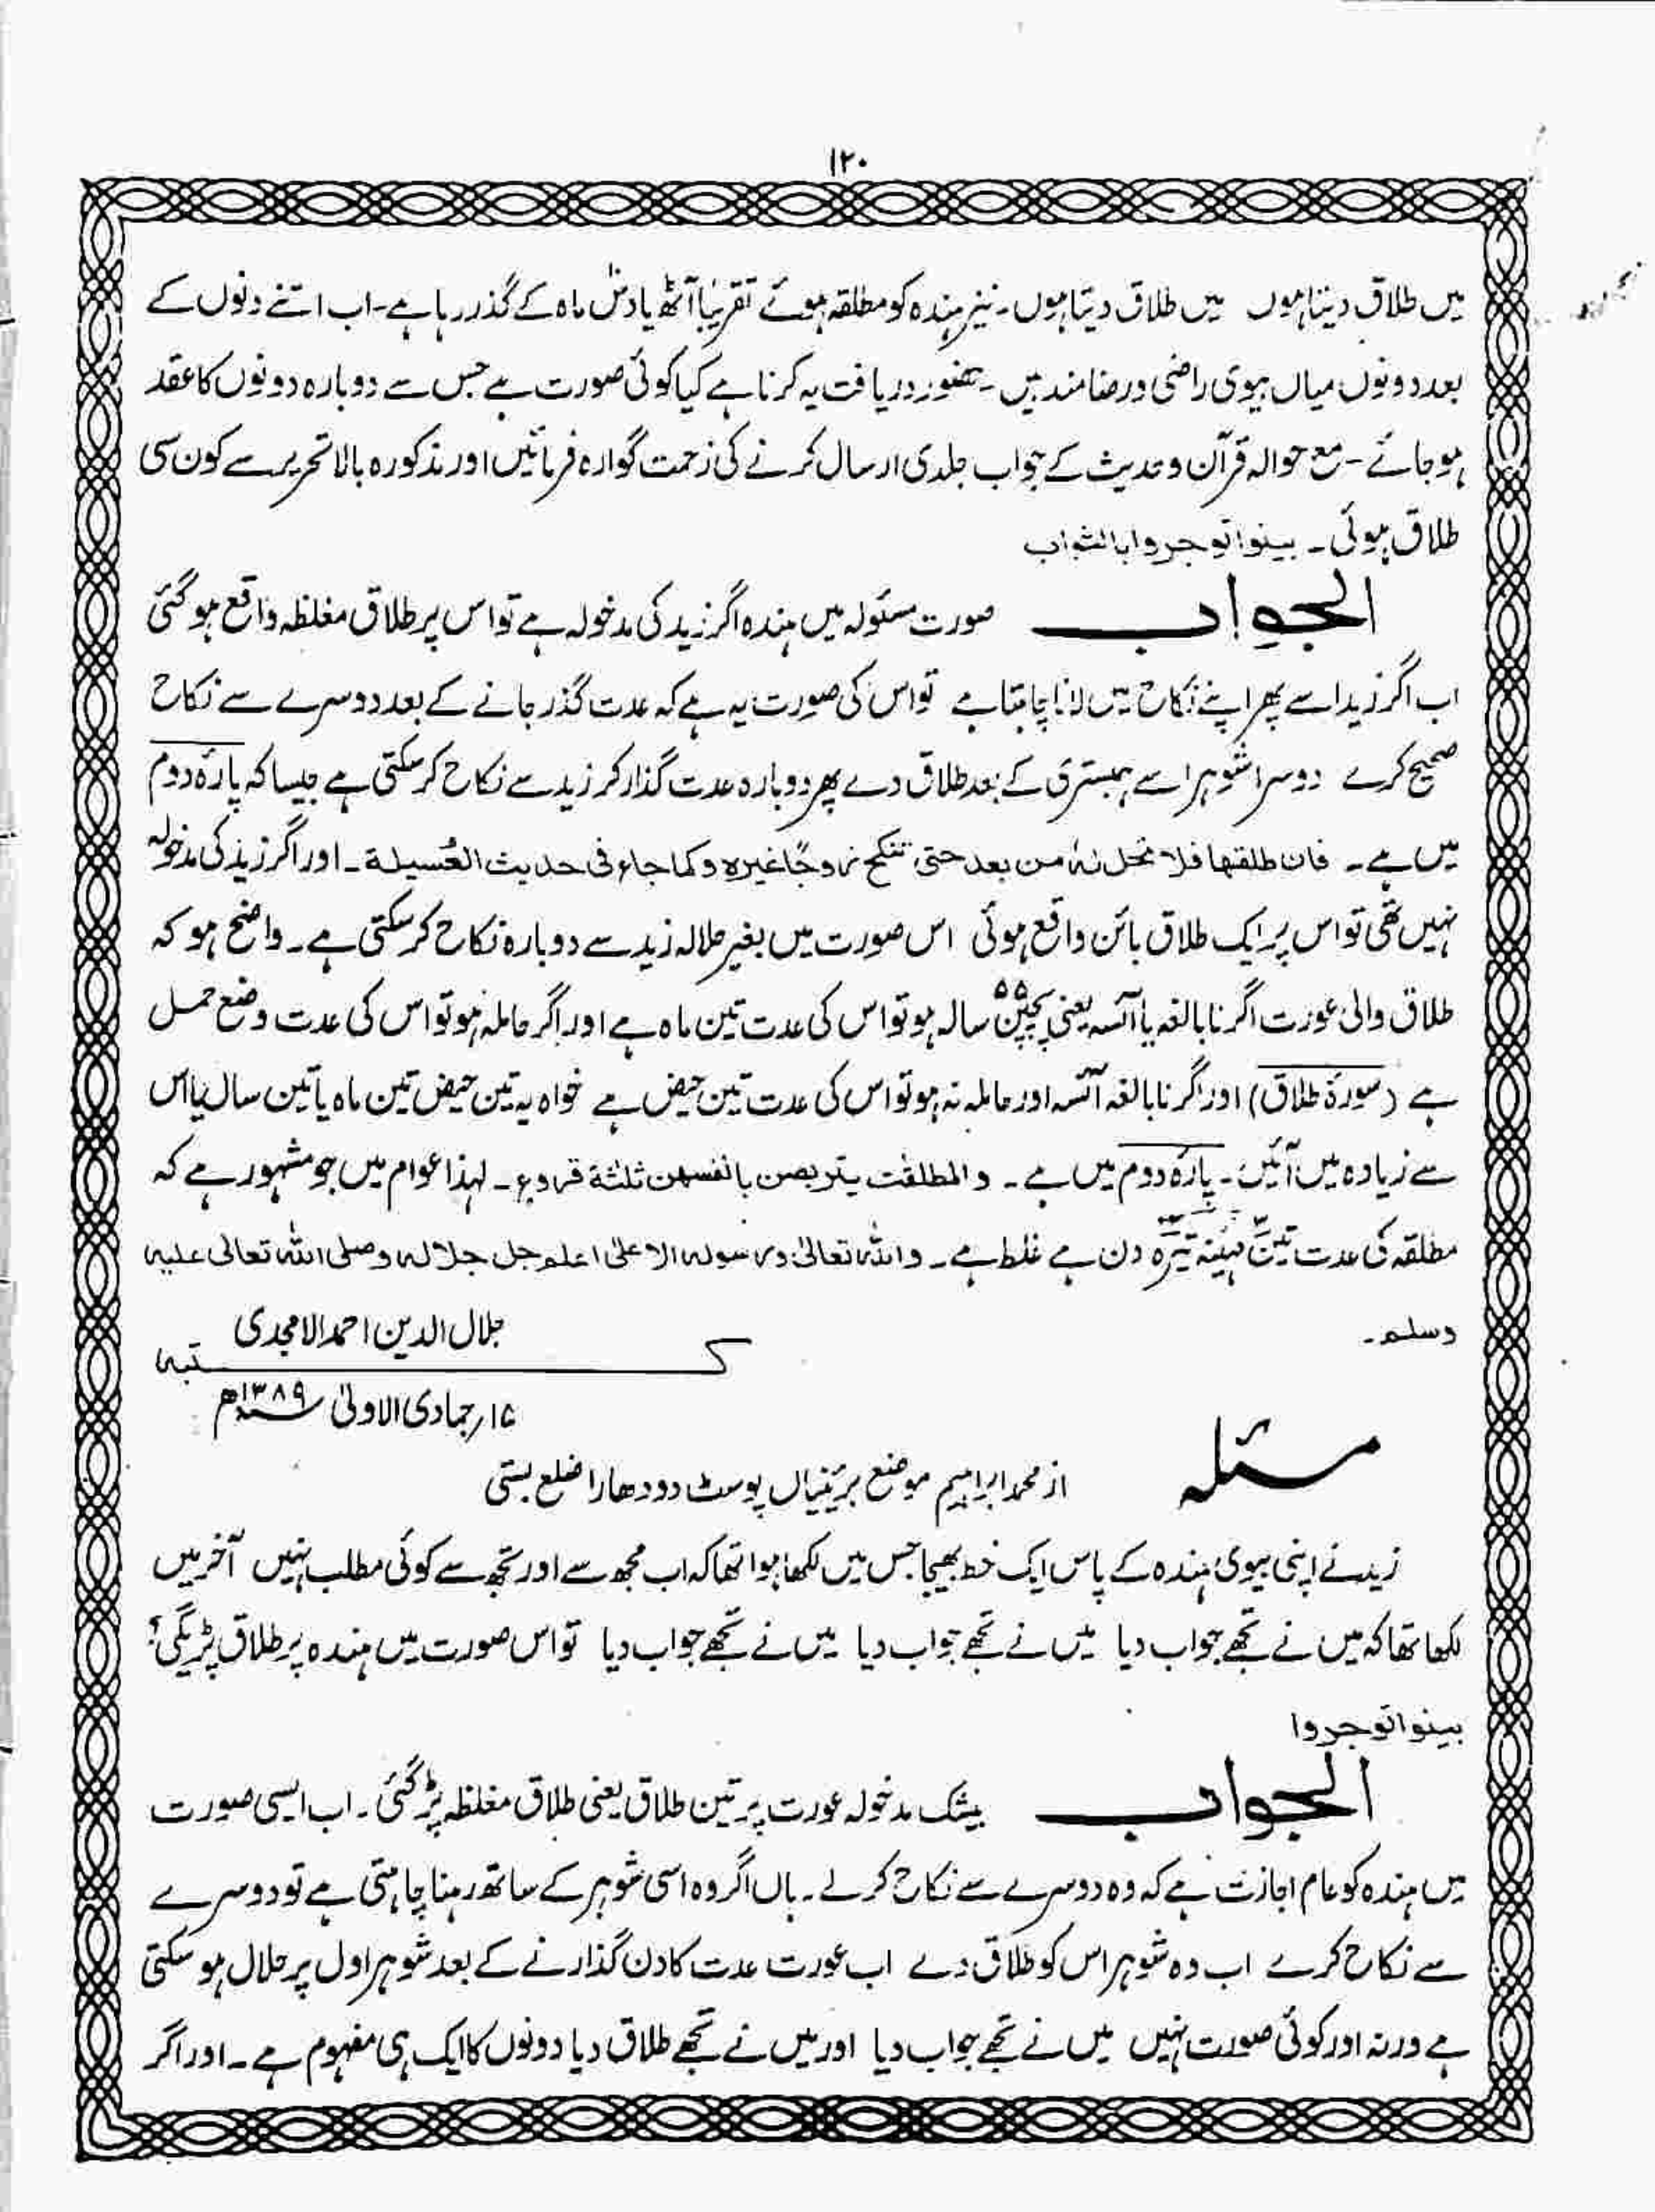 ۱۲۰
میں طلاق دیتا ہوں میں طلاق دیتا ہوں۔ نیز ہندہ کو مطلقہ ہوئے تقریباً آٹھ یا دس ماہ کے گذر رہا ہے۔ اب اتنے دنوں کے
بعد دونوں میاں بیوی راضی ورضامند ہیں۔ حضور دریافت یہ کرنا ہے کیا کوئی صورت ہے جس سے دوبارہ دونوں کا عقد
ہو جائے۔ مع حوالہ قرآن وحدیث کے جواب جلدی ارسال کرنے کی زحمت گوارہ فرمائیں اور مذکورہ بالا تحریر سے کون سی
طلاق ہوئی۔ بینوا توجروا بالثواب
الجواب صورت مسئولہ میں ہندہ اگر زید کی مدخولہ ہے تو اس پر طلاق مغلظہ واقع ہو گئی
اب اگر زید اسے پھر اپنے نکاح میں لانا چاہتا ہے تو اس کی صورت یہ ہے کہ عدت گذر جانے کے بعد دوسرے سے نکاح
صحیح کرے دوسرا شوہر اسے ہمبستری کے بعد طلاق دے پھر دوبارہ عدت گذار کر زید سے نکاح کر سکتی ہے جیسا کہ پارۂ دوم
میں ہے۔ فان طلقها فلا تحل لہٗ من بعد حتی تنکح زوجًا غیرہ وکما جاء فی حدیث العُسیلة۔ اور اگر زید کی مدخولہ
نہیں تھی تو اس پر ایک طلاق بائن واقع ہوئی اس صورت میں بغیر حلالہ زید سے دوبارہ نکاح کر سکتی ہے۔ واضح ہو کہ
طلاق والی عورت اگر نابالغہ یا آئسہ یعنی پچپن ۵۵ سالہ ہو تو اس کی عدت تین ماہ ہے اور اگر حاملہ ہو تو اس کی عدت وضع حمل
ہے (سورۂ طلاق) اور اگر نابالغہ آئسہ اور حاملہ نہ ہو تو اس کی عدت تین حیض ہے خواہ یہ تین حیض تین ماہ یا تین سال یا اس
سے زیادہ میں آئیں۔ پارۂ دوم میں ہے۔ والمطلقٰت یتربصن بانفسهن ثلثة قروء۔ لہذا عوام میں جو مشہور ہے کہ
مطلقہ کی عدت تین مہینہ تیرہ دن ہے غلط ہے۔ واللہ تعالیٰ ورسولہ الاعلیٰ اعلم جل جلالہ وصلی اللہ تعالی علیہ
وسلم۔
جلال الدین احمد الامجدی
کتبہ
۱۵؍ جمادی الاولیٰ ۱۳۸۹ھ
مسئلہ از محمد ابراہیم موضع پوسٹ دودھارا ضلع بستی
زید نے اپنی بیوی ہندہ کے پاس ایک خط بھیجا جس میں لکھا ہوا تھا کہ اب مجھ سے اور تجھ سے کوئی مطلب نہیں آخر میں
لکھا تھا کہ میں نے تجھے جواب دیا میں نے تجھے جواب دیا میں نے تجھے جواب دیا تو اس صورت میں ہندہ پر طلاق پڑیگی؟
بینوا توجروا
الجواب بیشک مدخولہ عورت پر تین طلاق یعنی طلاق مغلظہ پڑ گئی۔ اب ایسی صورت
میں ہندہ کو عام اجازت ہے کہ وہ دوسرے سے نکاح کر لے۔ ہاں اگر وہ اسی شوہر کے ساتھ رہنا چاہتی ہے تو دوسرے
سے نکاح کرے اب وہ شوہر اس کو طلاق دے اب عورت عدت کا دن گذارنے کے بعد شوہر اول پر حلال ہو سکتی
ہے ورنہ اور کوئی صورت نہیں میں نے تجھے جواب دیا اور میں نے تجھے طلاق دیا دونوں کا ایک ہی مفہوم ہے۔ اور اگر